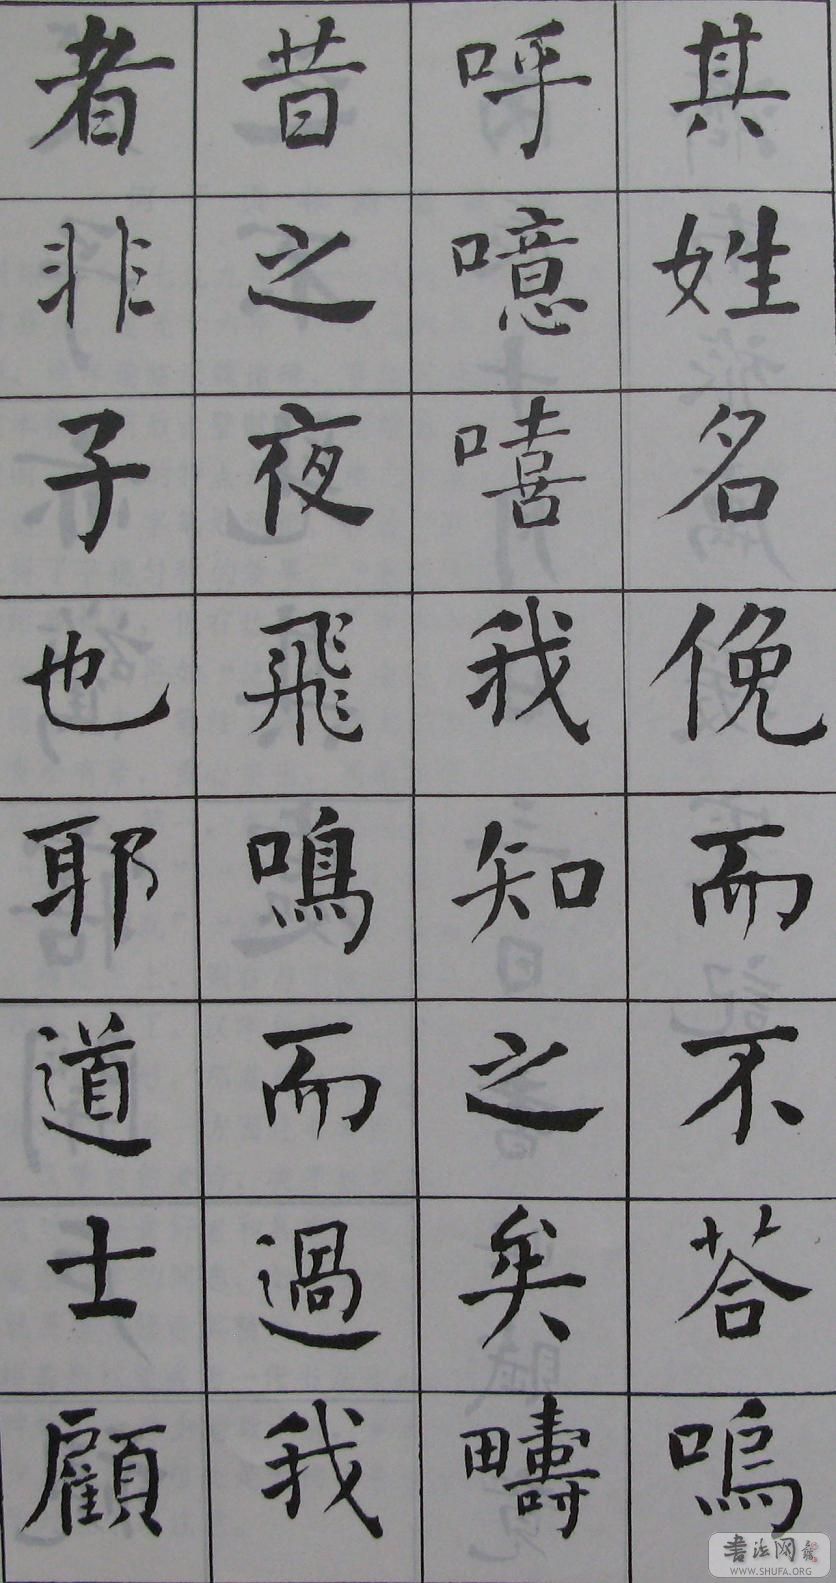 其姓名俛而不荅嗚
呼噫嘻我知之矣疇
昔之夜飛鳴而過我
者非子也耶道士顧
書法网
WWW.SHUFA.ORG